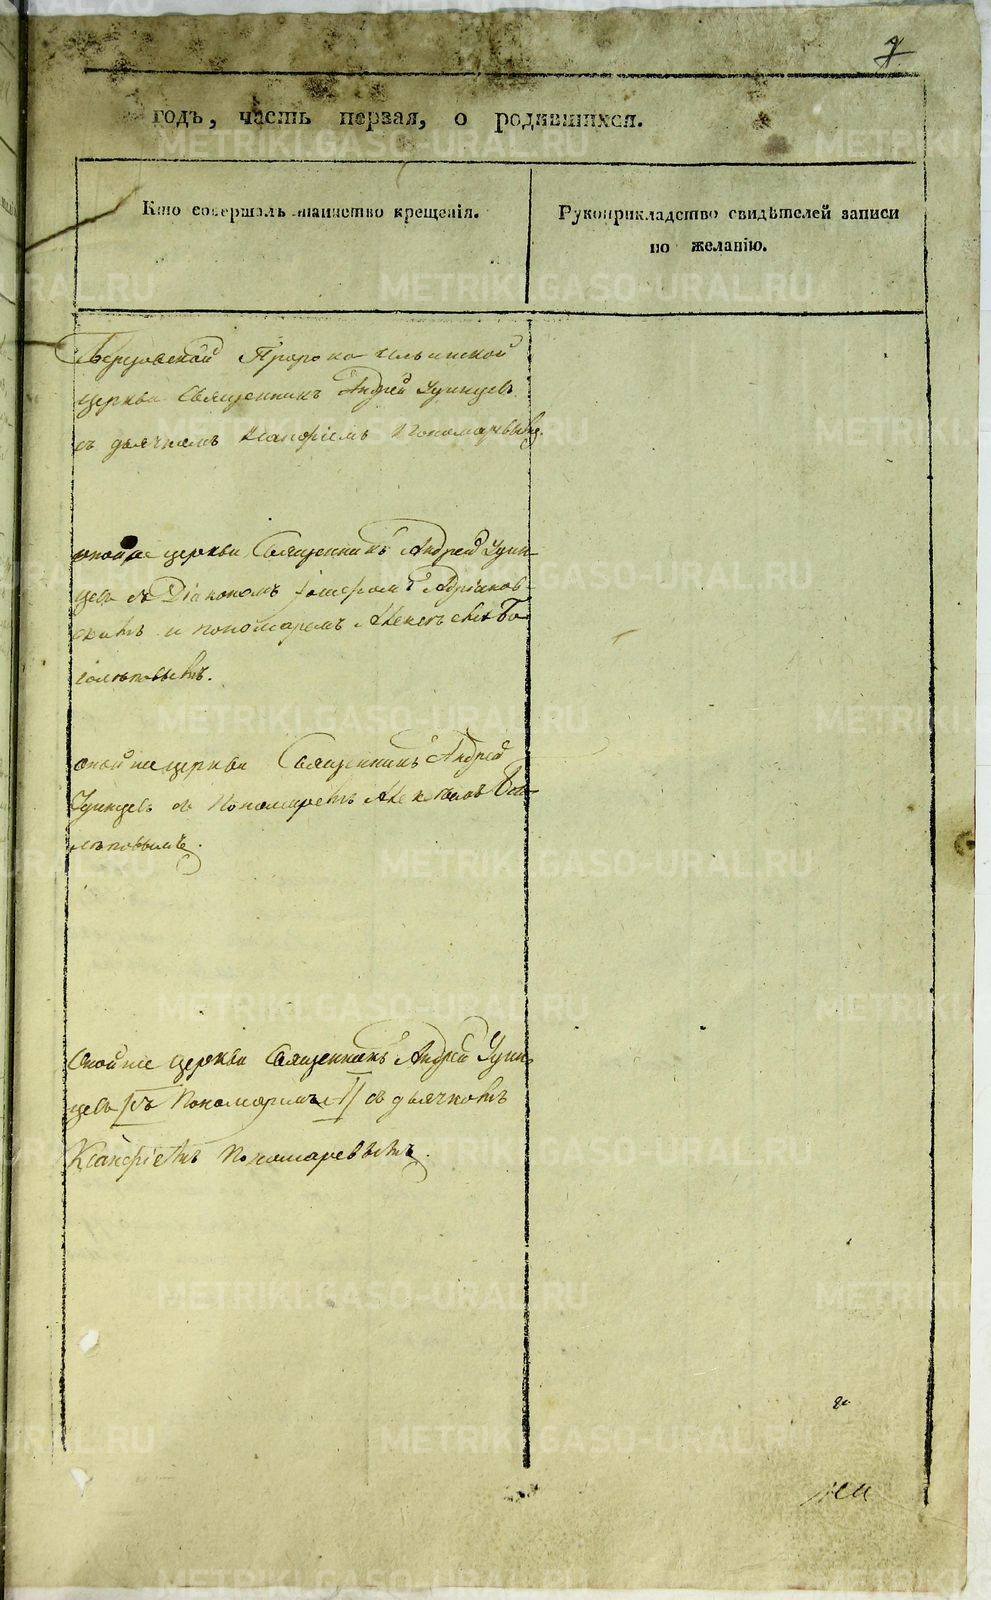 7
годъ, часть первая, о родившихся.
Кто совершалъ таинство крещенія.
Рукоприкладство свидѣтелей записи
по желанію.
Пророко Ильинской
церкви Священникъ Андрей Удинцев
съ дьячкомъ Ксанфіемъ Пономаревымъ.
оной же церкви Священникъ Андрей Удин-
цевъ съ Діакономъ
и пономаремъ Алексѣемъ Бо
голѣповымъ.
оной же церкви Священникъ Андрей
Удинцевъ съ Пономаремъ Алексѣемъ Бого
лѣповымъ.
Оной же церкви Священникъ Андрей Удин
цевъ [съ Пономаремъ] съ дьячкомъ
Ксанфіемъ Пономаревымъ.
METRIKI.GASO-URAL.RU